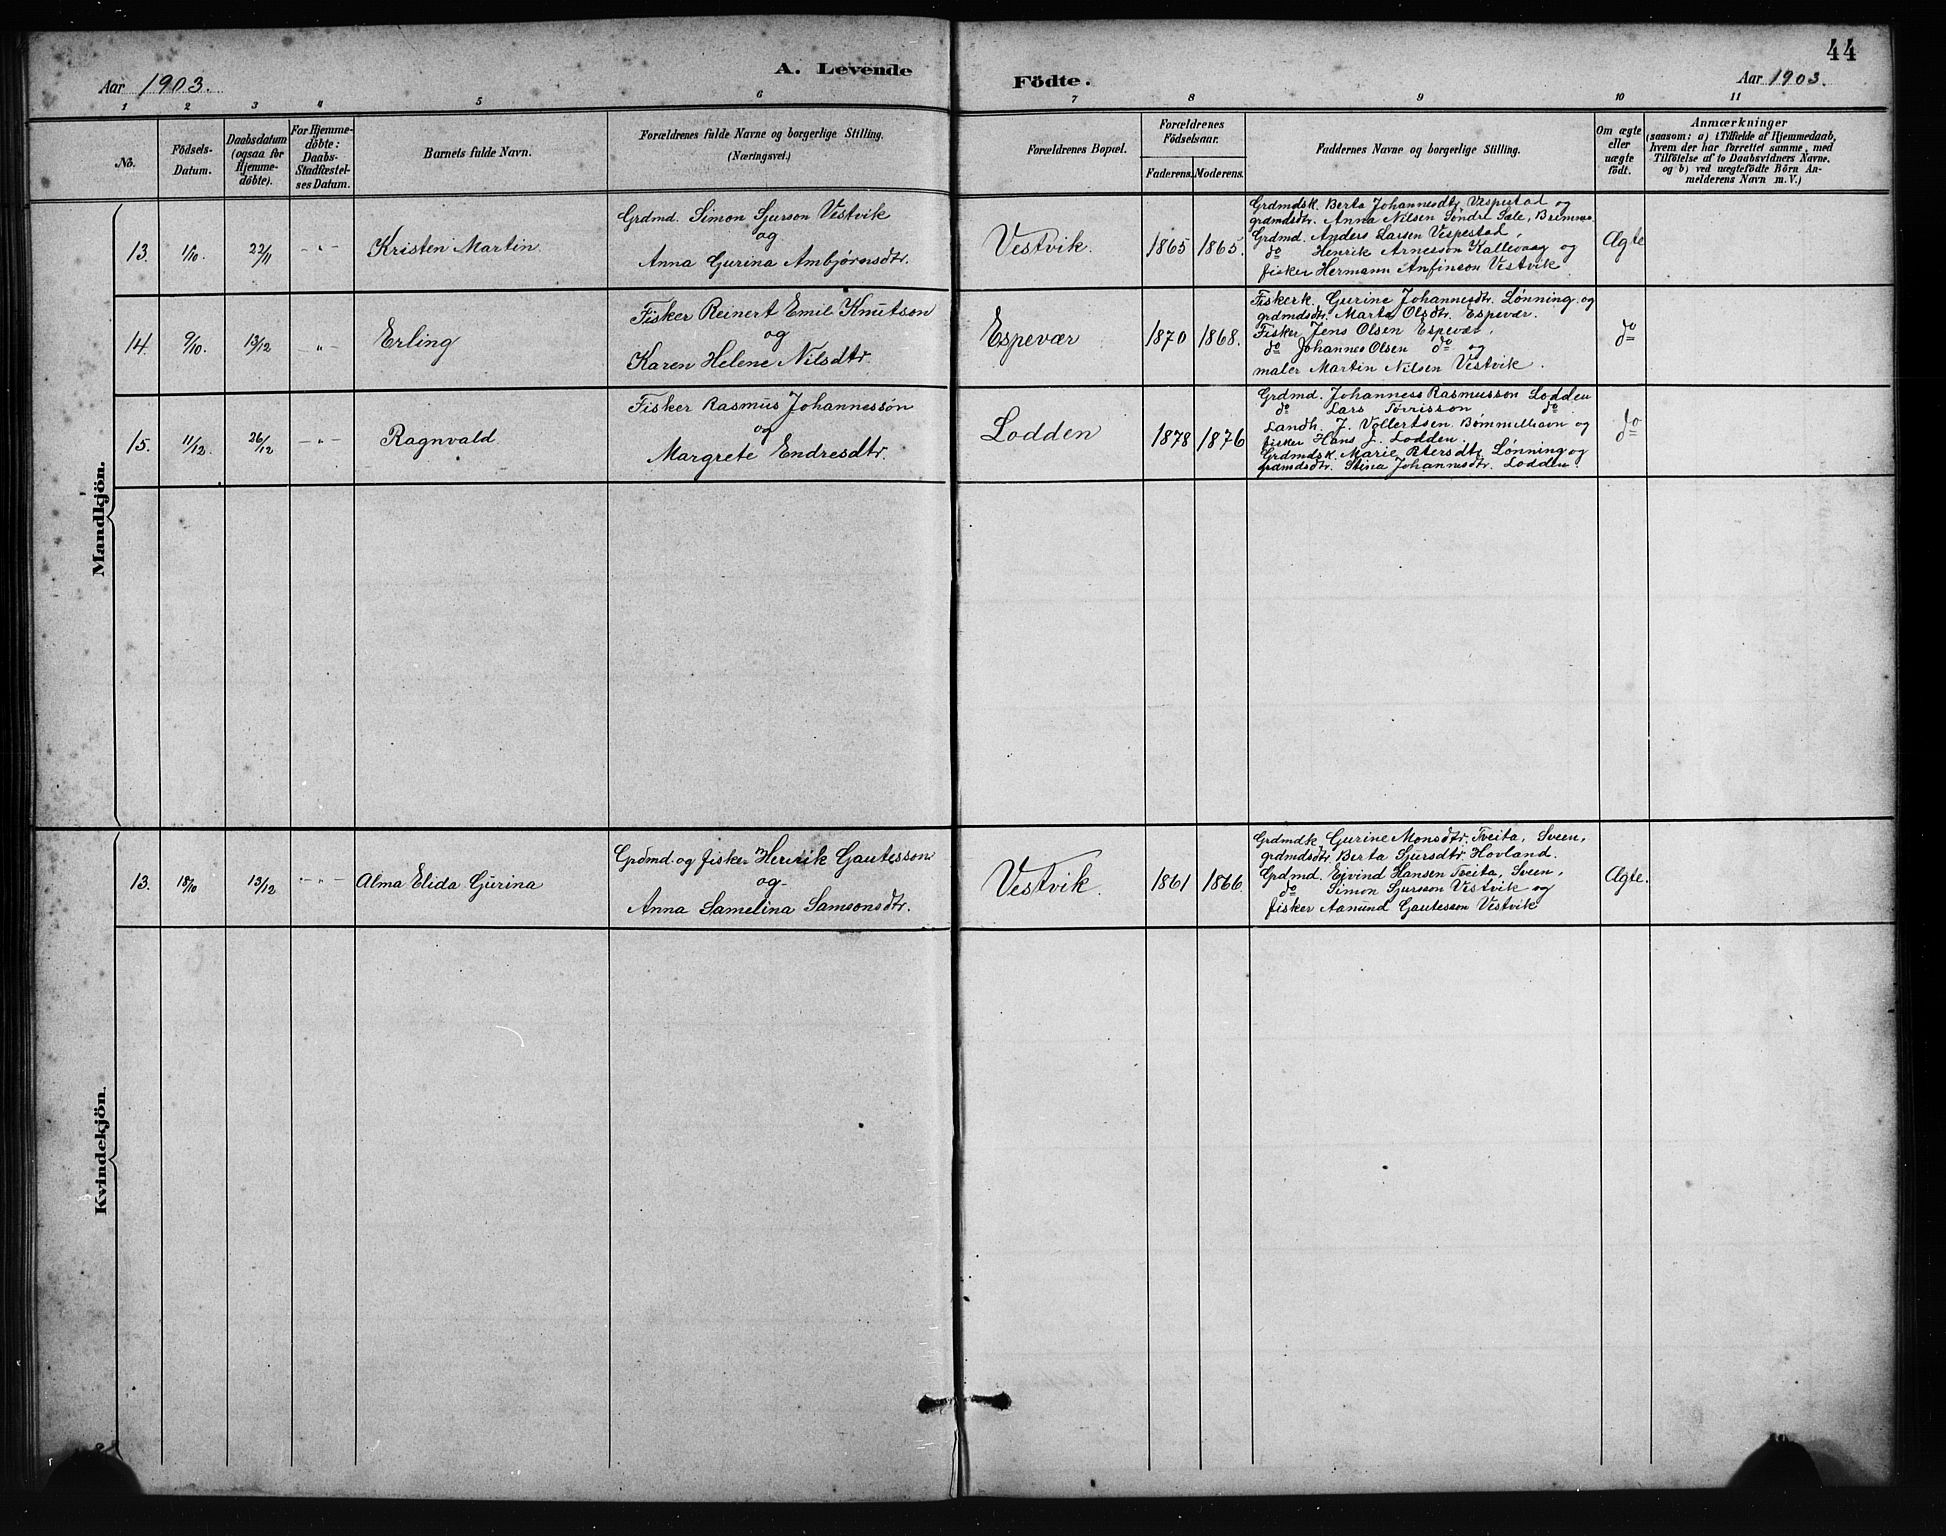 44
Aar 1903.
A. Levende
Födte.
Aar 1903.
1 2 3 4 5 6 7 8 9 10 11
No.
Födsels-
Datum.
Daabsdatum
(ogsaa for
Hjemme-
döbte).
For Hjemme-
döbte:
Daabs-
Stadfæstel-
ses Datum.
Barnets fulde Navn.
Forældrenes fulde Navne og borgerlige Stilling.
(Næringsvei.)
Forældrenes Bopæl.
Forældrenes
Födselsaar.
Faderens. Moderens.
Faddernes Navne og borgerlige Stilling.
Om ægte
eller
uægte
födt.
Anmærkninger
(saasom: a) i Tilfælde af Hjemmedaab,
hvem der har forrettet samme, med
Tilföielse af to Daabsvidners Navne.
og b) ved uægtefödte Börn An-
melderens Navn m.V.)
Mandkjön.
13. 1/10. 22/11 -„-
Kristen Martin
Grdmd. Simon Sjurson Vestvik
og
Anna Gurina Ambjørnsdtr.
Vestvik.
1865 1865.
Grdmdsk. Berta Johannesdtr. Vespestad og
grdmdsdtr. Anna Nilsen Søndre Sale, Bremnes
Grdmd. Anders Larsen Vespestad,
do Henrik Arneson Kallevaag og
fisker Hermann Anfinson Vestvik.
Ægte
14. 9/10. 13/12 „-
Erling
Fisker Reinert Emil Knutson
og
Karen Helene Nilsdtr.
Espevær
1870 1868.
Fiskerk. Gurine Johannesdtr. Lønning og
grdmdsdtr. Marta Olsdtr. Espevær.
Fisker Jens Olsen Espevær,
do Johannes Olsen do og
maler Martin Nilsen Vestvik.
do
15. 11/12. 26/12 -„-
Ragnvald
Fisker Rasmus Johannessøn
og
Margrete Endresdtr.
Lodden
1878 1876
Grdmd. Johannes Rasmusson Lodden
do Lars Torrisson do.
Landh. J. Vollertsen Bømmelhavn og
fisker Hans J. Lodden.
Grdmdsk. Marie Petersdtr. Lønning og
grdmdsdtr. Stina Johannesdtr. Lodden.
do
Kvindekjön.
13. 18/10 13/12 -„-
Alma Elida Gurina
Grdmd. og fisker Henrik Gautesson
og
Anna Samelina Samsonsdtr.
Vestvik.
1861 1866
Grdmdk Gurine Monsdtr. Tveita, Sveen,
grdmdsdtr. Berta Sjursdtr. Hovland.
Grdmd. Ejvind Hansen Tveita, Sveen,
do Simon Sjursson Vestvik og
fisker Aamund Gautesson Vestvik
Ægte.